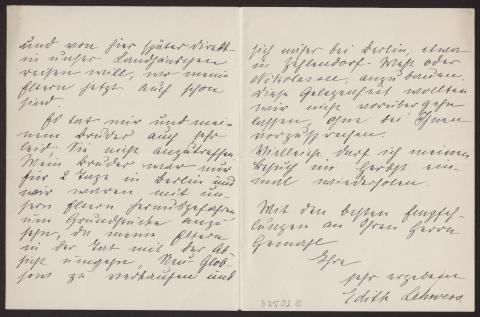 und von hier später direkt
in unser Landhäuschen
reisen will, wo meine
Eltern jetzt auch schon
sind.
Es tat mir und mei-
nem Bruder auch sehr
leid, Sie nicht anzutreffen.
Mein Bruder war nur
für 2 Tage in Berlin und
wir waren mit un-
sern Eltern herausgefahren
um Grundstücke anzu-
sehn, da meine Eltern
in der Tat mit der Ab-
sicht umgehn, Neu-Glob-
sow zu verkaufen und
sich näher bei Berlin, etwa
in Zehlendorf-West oder
Nikolassee, anzubauen.
Diese Gelegenheit wollten
wir nicht vorübergehn
lassen, ohne bei Ihnen
vorzusprechen.
Vielleicht darf ich meinen
Besuch im Herbst ein-
mal wiederholen.
Mit den besten Empfeh-
lungen an Ihren Herrn
Gemahl
Ihre
sehr ergebene
Edith Lehwess